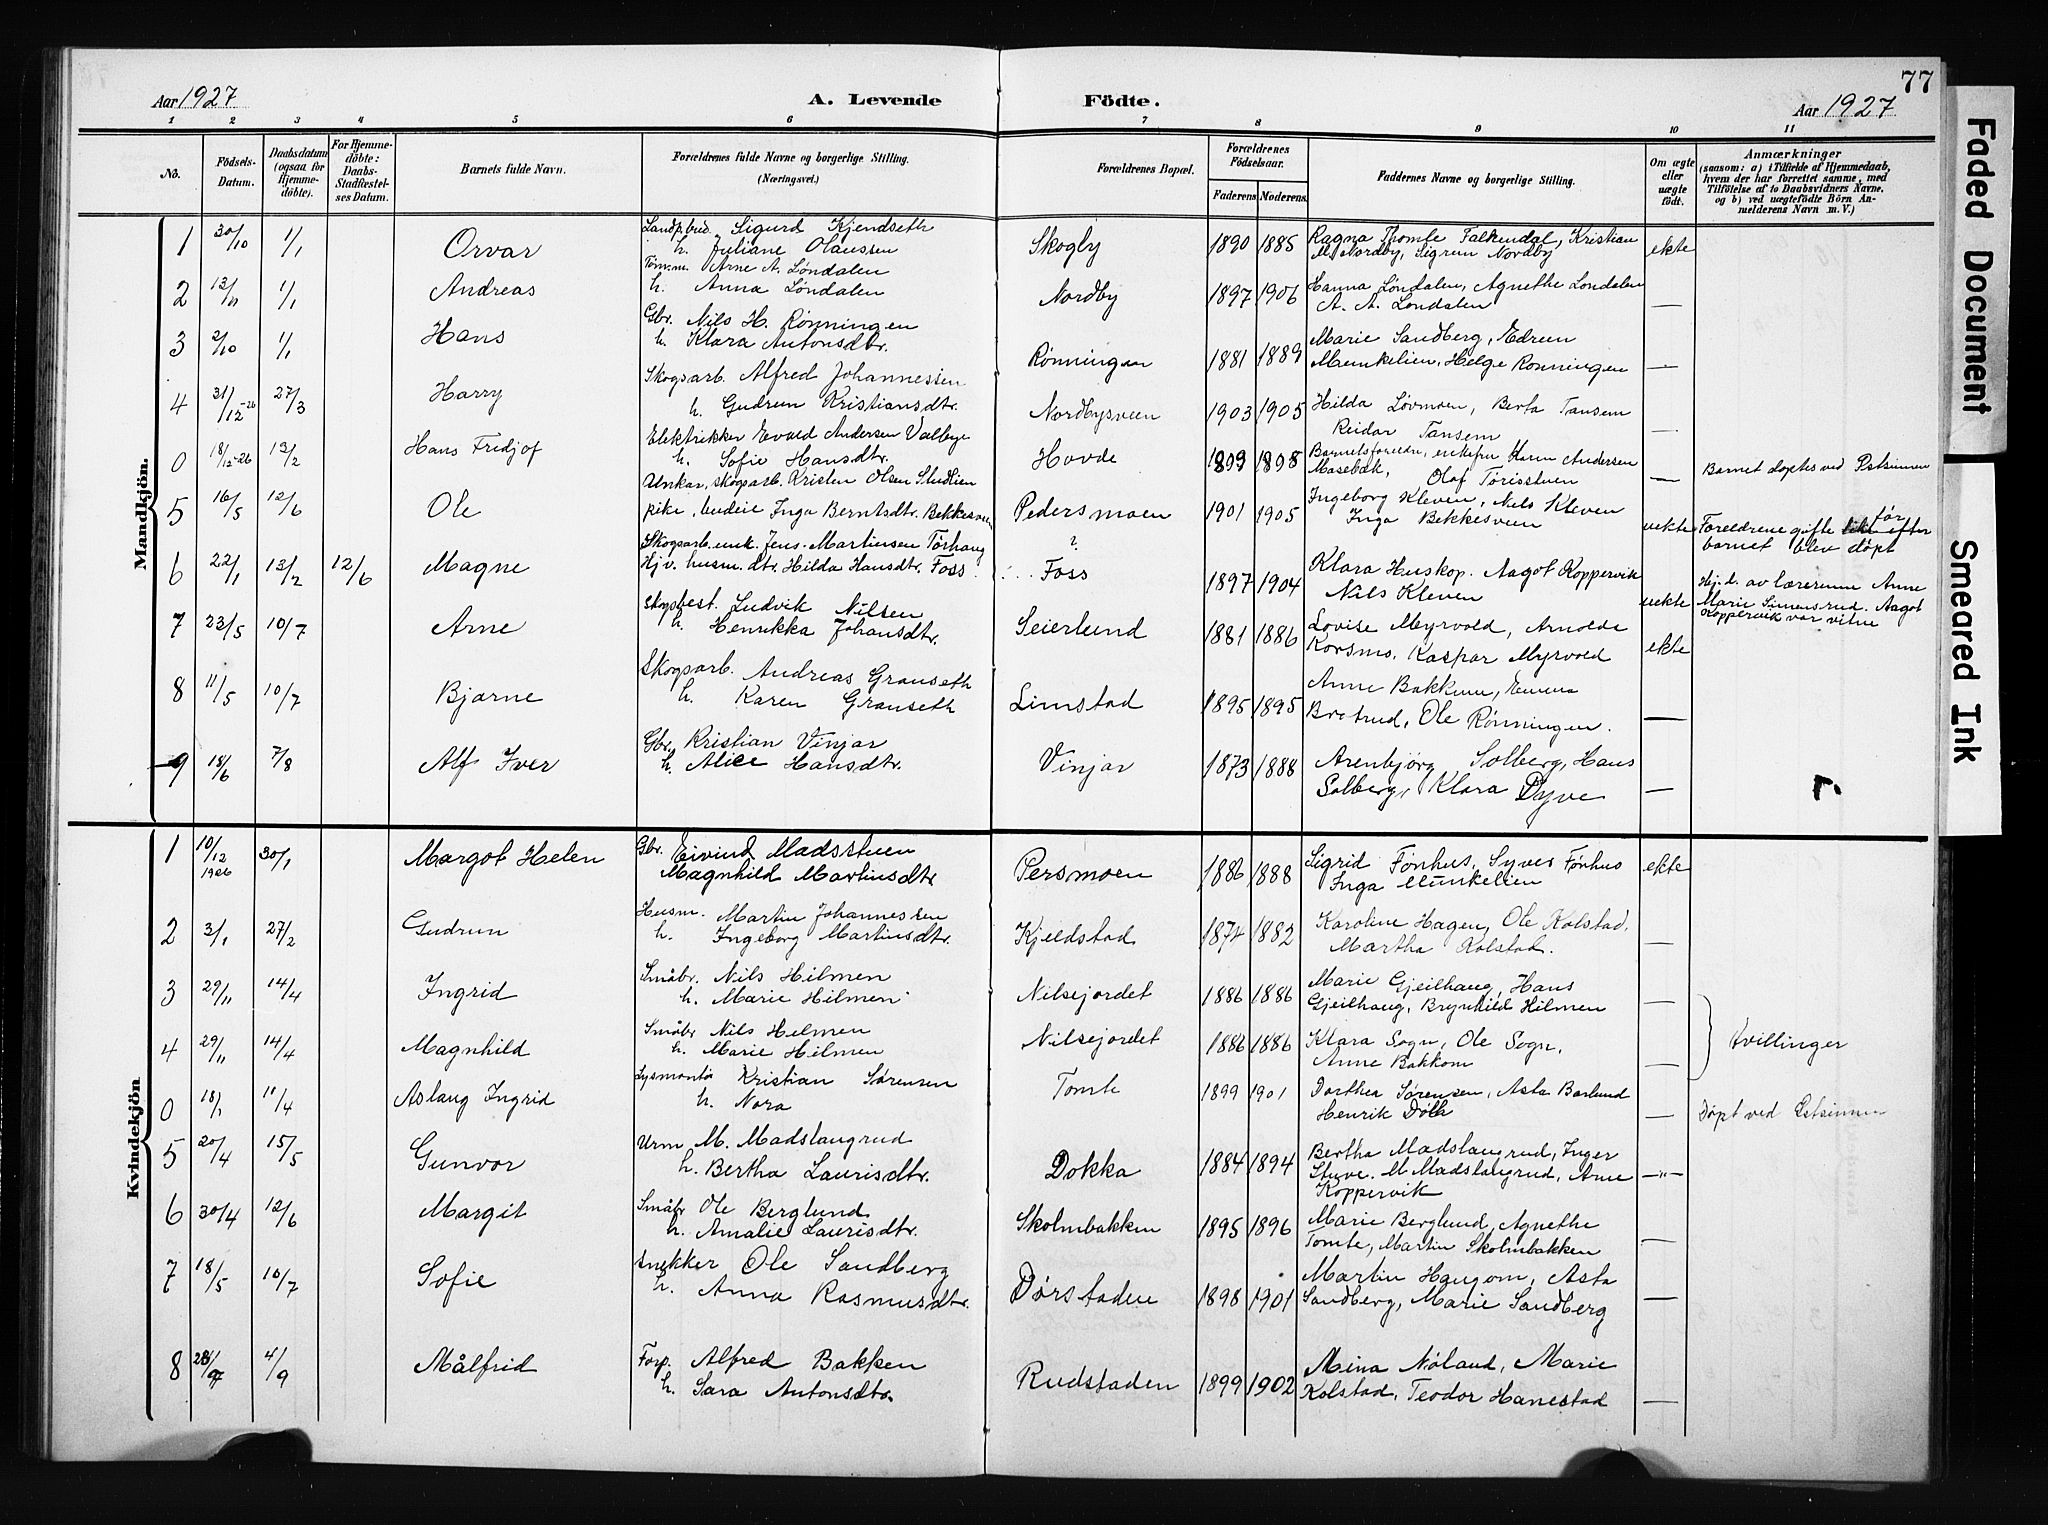 77
Aar 1927
A. Levende Födte.
Aar 1927
1 2 3 4 5 6 7 8 9 10 11
No.
Födsels-
Datum.
Daabsdatum
(ogsaa for
Hjemme-
döbte).
For Hjemme-
döbte:
Daabs-
Stadfæstel-
ses Datum.
Barnets fulde Navn.
Forældrenes fulde Navne og borgerlige Stilling.
(Næringsvei.)
Forældrenes Bopæl.
Forældrenes
Födselsaar.
Faderens Moderens
Faddernes Navne og borgerlige Stilling.
Om ægte
eller
uægte
födt.
Anmærkninger
(saasom: a) i Tilfælde af Hjemmedaab,
hvem der har forrettet samme, med
Tilföielse af to Daabsvidners Navne,
og b) ved uægtefödte Börn An-
melderens Navn m. V.)
Mandkjön.
1 30/10 1/1 Orvar
Landpbud. Sigurd Kjendseth
h. Juliane Olaussen
Skogly 1890 1885
Ragna Thomle Falkendal, Kristian
M. Nordby, Sigrun Nordby
ekte
2 13/11 1/1 Andreas
Tøm.m. Arne A. Løndalen
h. Anna Løndalen
Nordby 1897 1906
Hanna Løndalen, Agnethe Londalen
A. A. Londalen
—
3 2/10 1/1 Hans
Gbr. Nils H. Rønningen
h. Klara Antonsdtr.
Rønningen 1881 1889
Marie Sandberg, Edreen
Munkelien, Helge Ronningen
—
4 31/12-26 27/3 Harry
Skogsarb. Alfred Johannessen
h. Gudrun Kristiansdtr.
Nordbysveen 1903 1905
Hilda Løvmoen, Berta Tansem
Reidar Tansem
—
0 18/12-26 13/2 Hans Fridjof
Elektrikker Evald Andersen Valbye
h. Sofie Hansdtr.
Hovde 1899 1898
Barnetsforeldre, enkefru Karen Andersen
Masebæk, Olaf Tørisstuen
—
Barnet døptes ved Østsinnen
5 16/5 12/6 Ole
Unkar, skogsarb. Kristen Olsen Studlien
pike, budeie Inga Berntsdtr. Bekkesveen
Pedersmoen 1901 1905
Ingeborg Kleven, Nils Kleven
Inga Bekkesveen
uekte
Foreldrene gifte før efter
barnet blev døpt
6 22/1 13/2 12/6 Magne
Skogsarb. enk. Jens Martinsen Tørhaug
Hjv. husm. dtr. Hilda Hansdtr. Foss
? Foss 1897 1904
Klara Huskop. Aagot Koppervik
Nils Kleven
uekte
Hj.d. av lærerinne Anne
Marie Simensrud. Aagot
Koppervik var vitne
7 23/5 10/7 Arne
Skogbest. Ludvik Nilsen
h. Henrikka Johansdtr.
Seierlund 1881 1886
Lovise Myrvold, Arnolda
Korsmo, Kaspar Myrvold
ekte
8 11/5 10/7 Bjarne
Skogsarb. Andreas Granseth
h. Karen Granseth
Limstad 1895 1895
Anne Bakkene, Emma
Brotrud, Ole Rønningen.
—
9 18/6 7/8 Alf Iver
Gbr. Kristian Vinjar
h. Alice Hansdtr.
Vinjar 1873 1888
Arenbjörg Solberg, Hans
Solberg, Klara Dyve
—
Kvindekjön.
1 10/12 1926 30/1 Margot Helen
Gbr. Eivind Madsstuen
Magnhild Martinsdtr
Persmoen 1886 1888
Sigrid Fønhus, Syver Fønhus
Inga Munkelien
ekte
2 3/1 27/2 Gudrun
Husm. Martin Johannessen
h. Ingeborg Martinsdtr.
Kjeldstad 1874 1882
Karoline Hagen, Ole Kolstad,
Martha Kolstad.
—
3 29/11 14/4 Ingrid
Småbr. Nils Hilmen
h. Marie Hilmen
Nilsejordet 1886 1886
Marie Gjeilhaug, Hans
Gjeilhaug, Brynhild Hilmen
—
4 29/11 14/4 Magnhild
Småbr Nils Helmen
h. Marie Hilmen
Nilsejordet 1886 1886
Klara Sogn, Ole Sogn,
Anne Bakkom
—
tvillinger
0 18/1 11/4 Aslaug Ingrid
Lysmontø Kristian Sørensen
h. Nora
Tomte 1899 1901
Dorthea Sørensen, Asta Børlund
Henrik Døll
—
Døpt ved Østsinnen
5 20/4 15/5 Gunvor
Urm M. Madslangrud
h. Bertha Laurisdtr.
Dokka 1884 1894
Bertha Madslangrud, Inger
Stuve. M Madslangrud, Arne
Koppervik
—"—
6 30/4 12/6 Margit
Småbr Ole Berglund
h. Amalie Laurisdtr.
Skolmbakken 1895 1896
Marie Berglund, Agnethe
Tomte, Martin Skolmbakken
—
7 18/5 10/7 Sofie
Snekker Ole Sandberg
h. Anna Rasmusdtr.
Dørstaden 1898 1901
Martin Haugom, Asta
Sandberg, Marie Sandberg
—
8 28/7 4/9 Målfrid
Forp. Alfred Bakken
h. Sara Antonsdtr.
Rudstaden 1899 1902
Mina Nøland, Marie
Kolstad, Teodor Hanestad
—
Faded Document
Smeared Ink